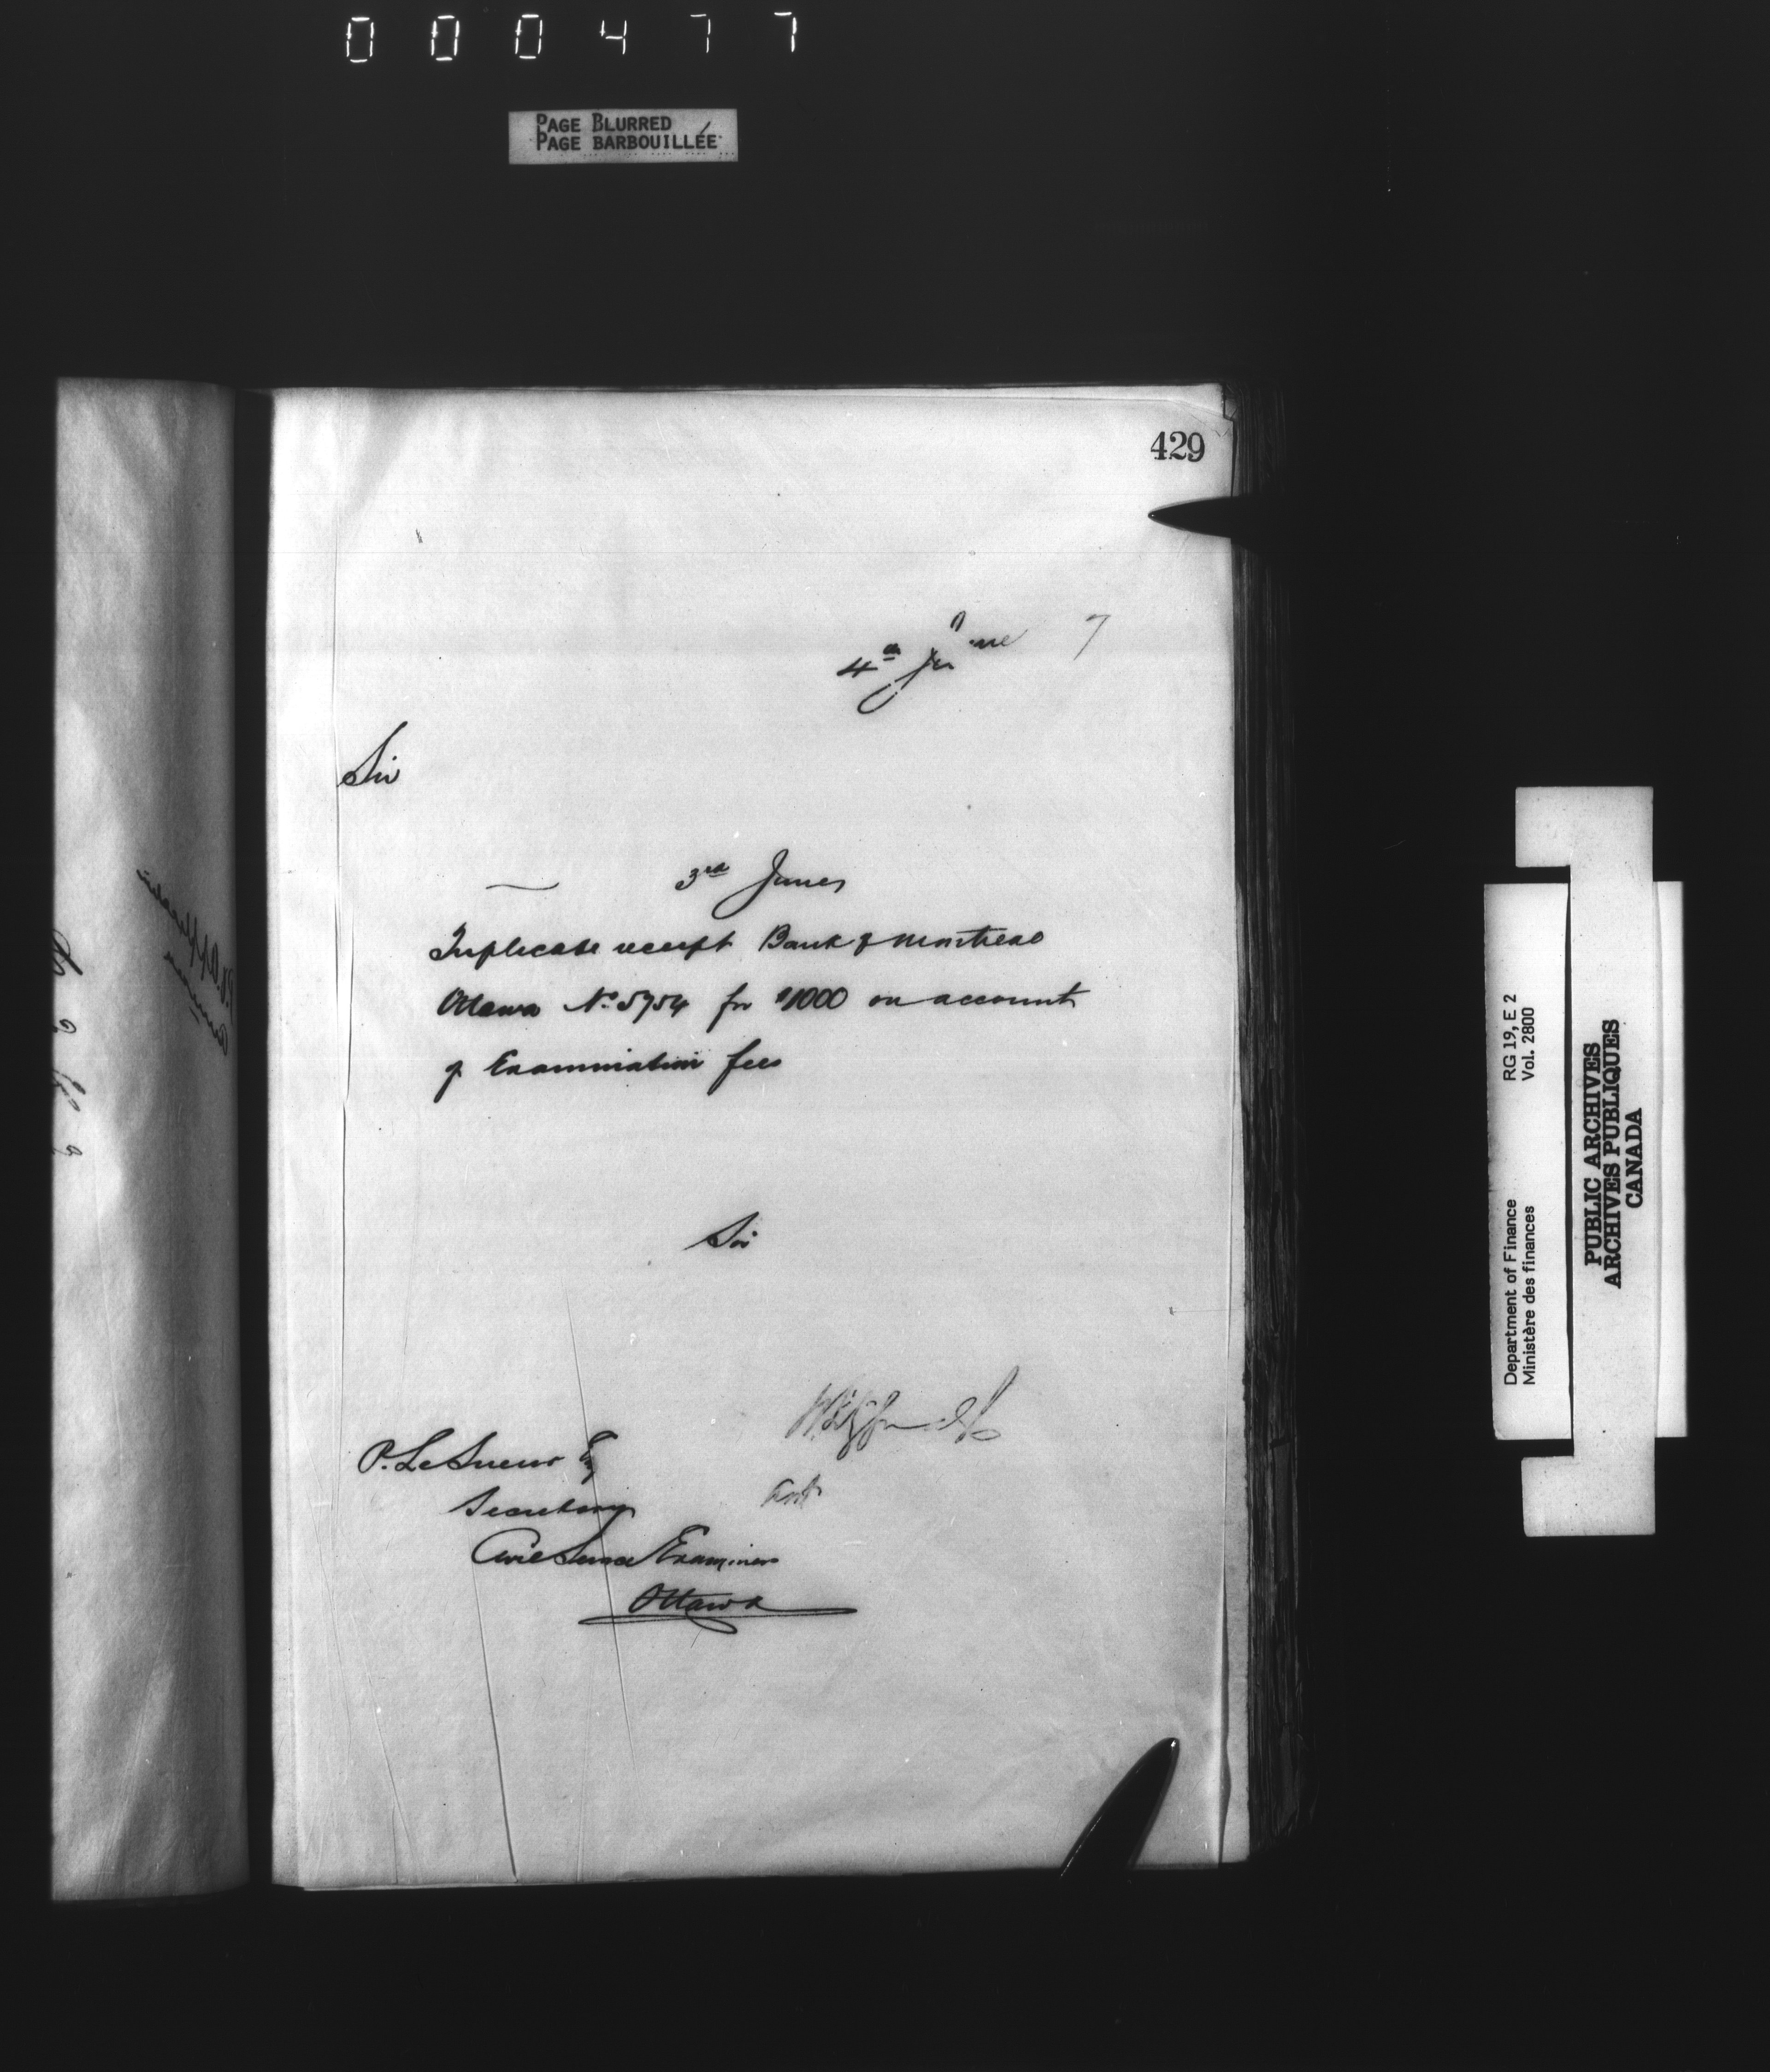 000477
PAGE BLURRED
PAGE BARBOUILLÉE
429
4th June 7
Sir
3rd June
Triplicate receipt Bank of Montreal
Ottawa No 5754 for $1000 on account
of Examination fees
Sir
P. LeSueur Esq
Secretary
Civil Service Examiners
Ottawa
Department of Finance RG 19, E 2
Ministère des finances Vol. 2800
PUBLIC ARCHIVES
ARCHIVES PUBLIQUES
CANADA